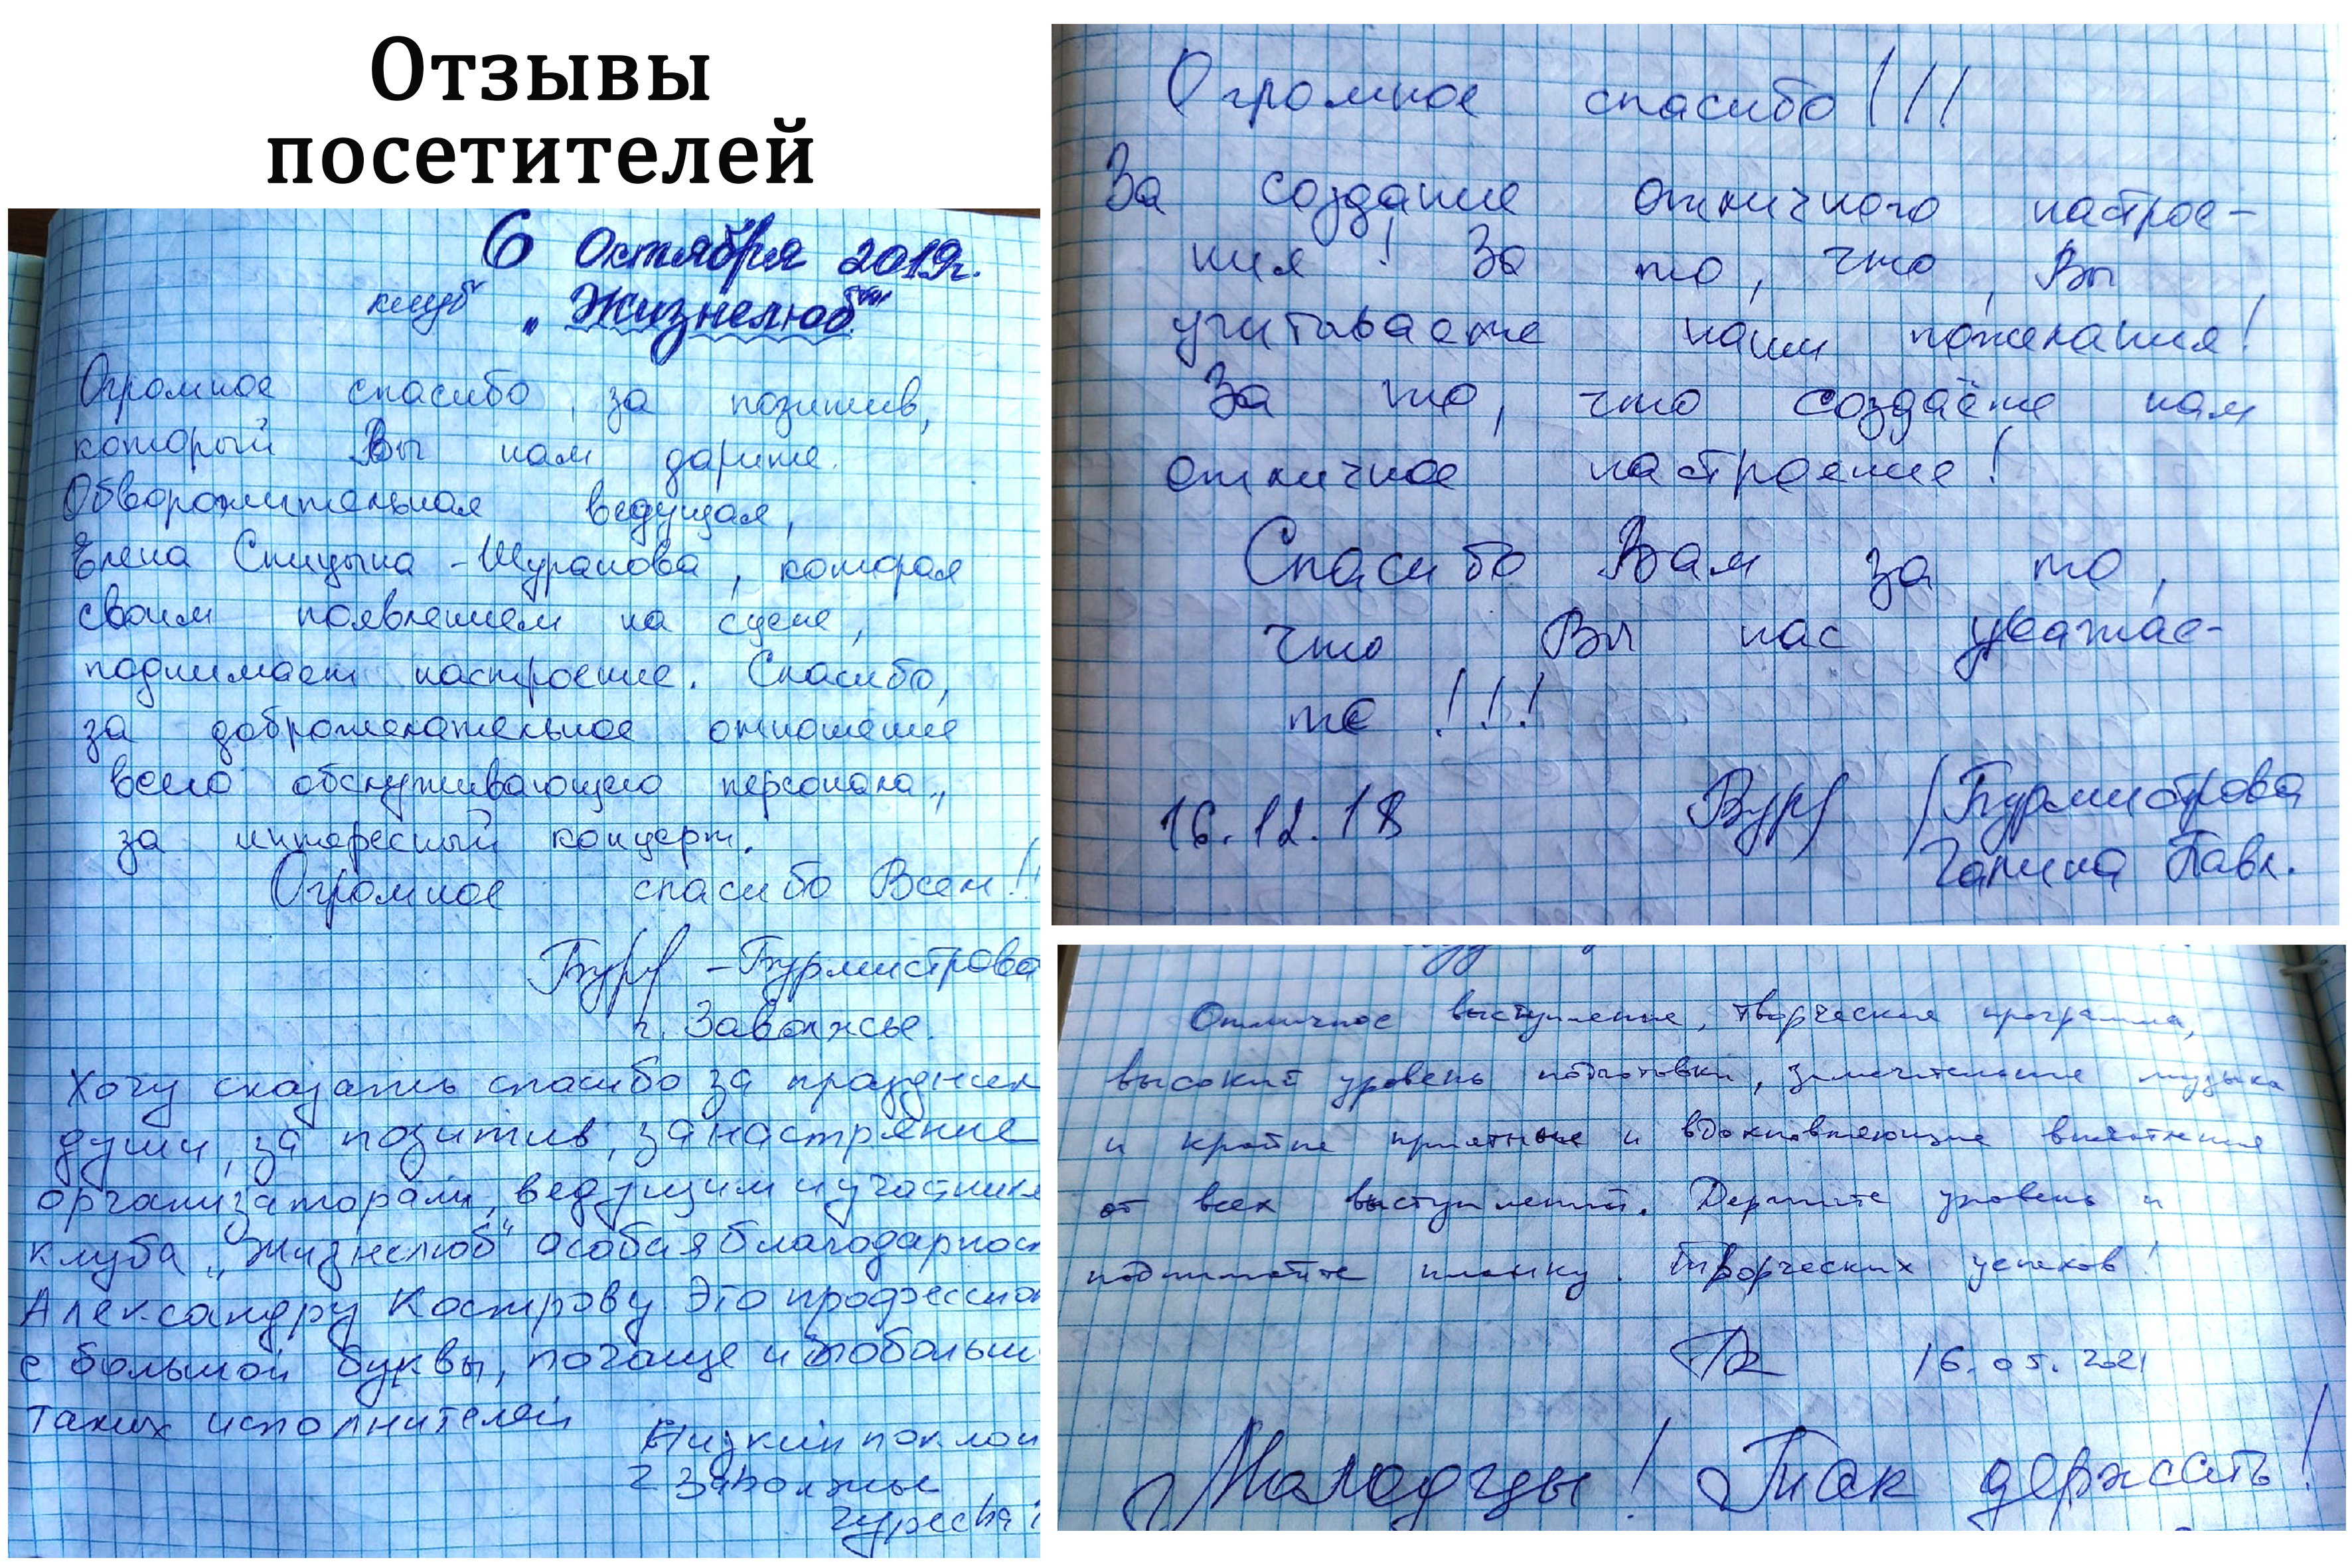 Отзывы
посетителей
6 Октября 2019г.
клуб „Жизнелюб“
Огромное спасибо, за позитив,
который Вы нам дарите.
Обворожительная ведущая,
Елена Спицына-Шуранова, которая
своим появлением на сцене,
поднимает настроение. Спасибо,
за доброжелательное отношение
всего обслуживающего персонала,
за интересный концерт.
Огромное спасибо Всем!!
Бур – Бурмистрова
г. Заволжье.
Хочу сказать спасибо за праздник
души, за позитив, за настроение
организаторам, ведущим и участника
клуба „Жизнелюб“ особая благодарност
Александру Кострову Это професссион
с большой буквы, почаще и побольш
таких исполнителей
Низкий поклон
г Заволжье
Огромное спасибо!!!
За создание отличного настрое-
ния! За то, что, Вы
учитываете наши пожелания!
За то, что создаёте нам
отличное настроение!
Спасибо Вам за то,
что Вы нас уважае-
те!!!
16.12.18 Бур /Бурмистрова
Галина Павл.
Отличное выступление, творческая программа,
высокий уровень подготовки, замечательные музыка
и крайне приятные и вдохновляющие впечатления
от всех выступлений. Держите уровень и
поднимайте планку. Творческих успехов!
16.05.2021
Молодцы! Так держать!